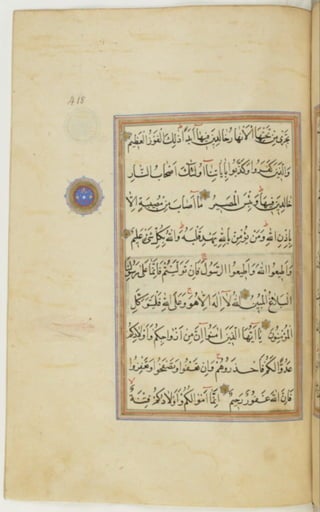 A 18
تجري من تحتها الانهار خالدين فيها ابدا ذلك الفوز العظيم
والذين كفروا وكذبوا باياتنا اولئك اصحاب النار
خالدين فيها وبئس المصير ما اصاب من مصيبة الا
باذن الله ومن يؤمن بالله يهد قلبه والله بكل شئ عليم
واطيعوا الله واطيعوا الرسول فان توليتم فانما على رسولنا
البلاغ المبين الله لا اله الا هو وعلى الله فليتوكل
المؤمنون يا ايها الذين امنوا ان من ازواجكم واولادكم
عدوا لكم فاحذروهم وان تعفوا وتصفحوا وتغفروا
فان الله غفور رحيم انما اموالكم واولادكم فتنة